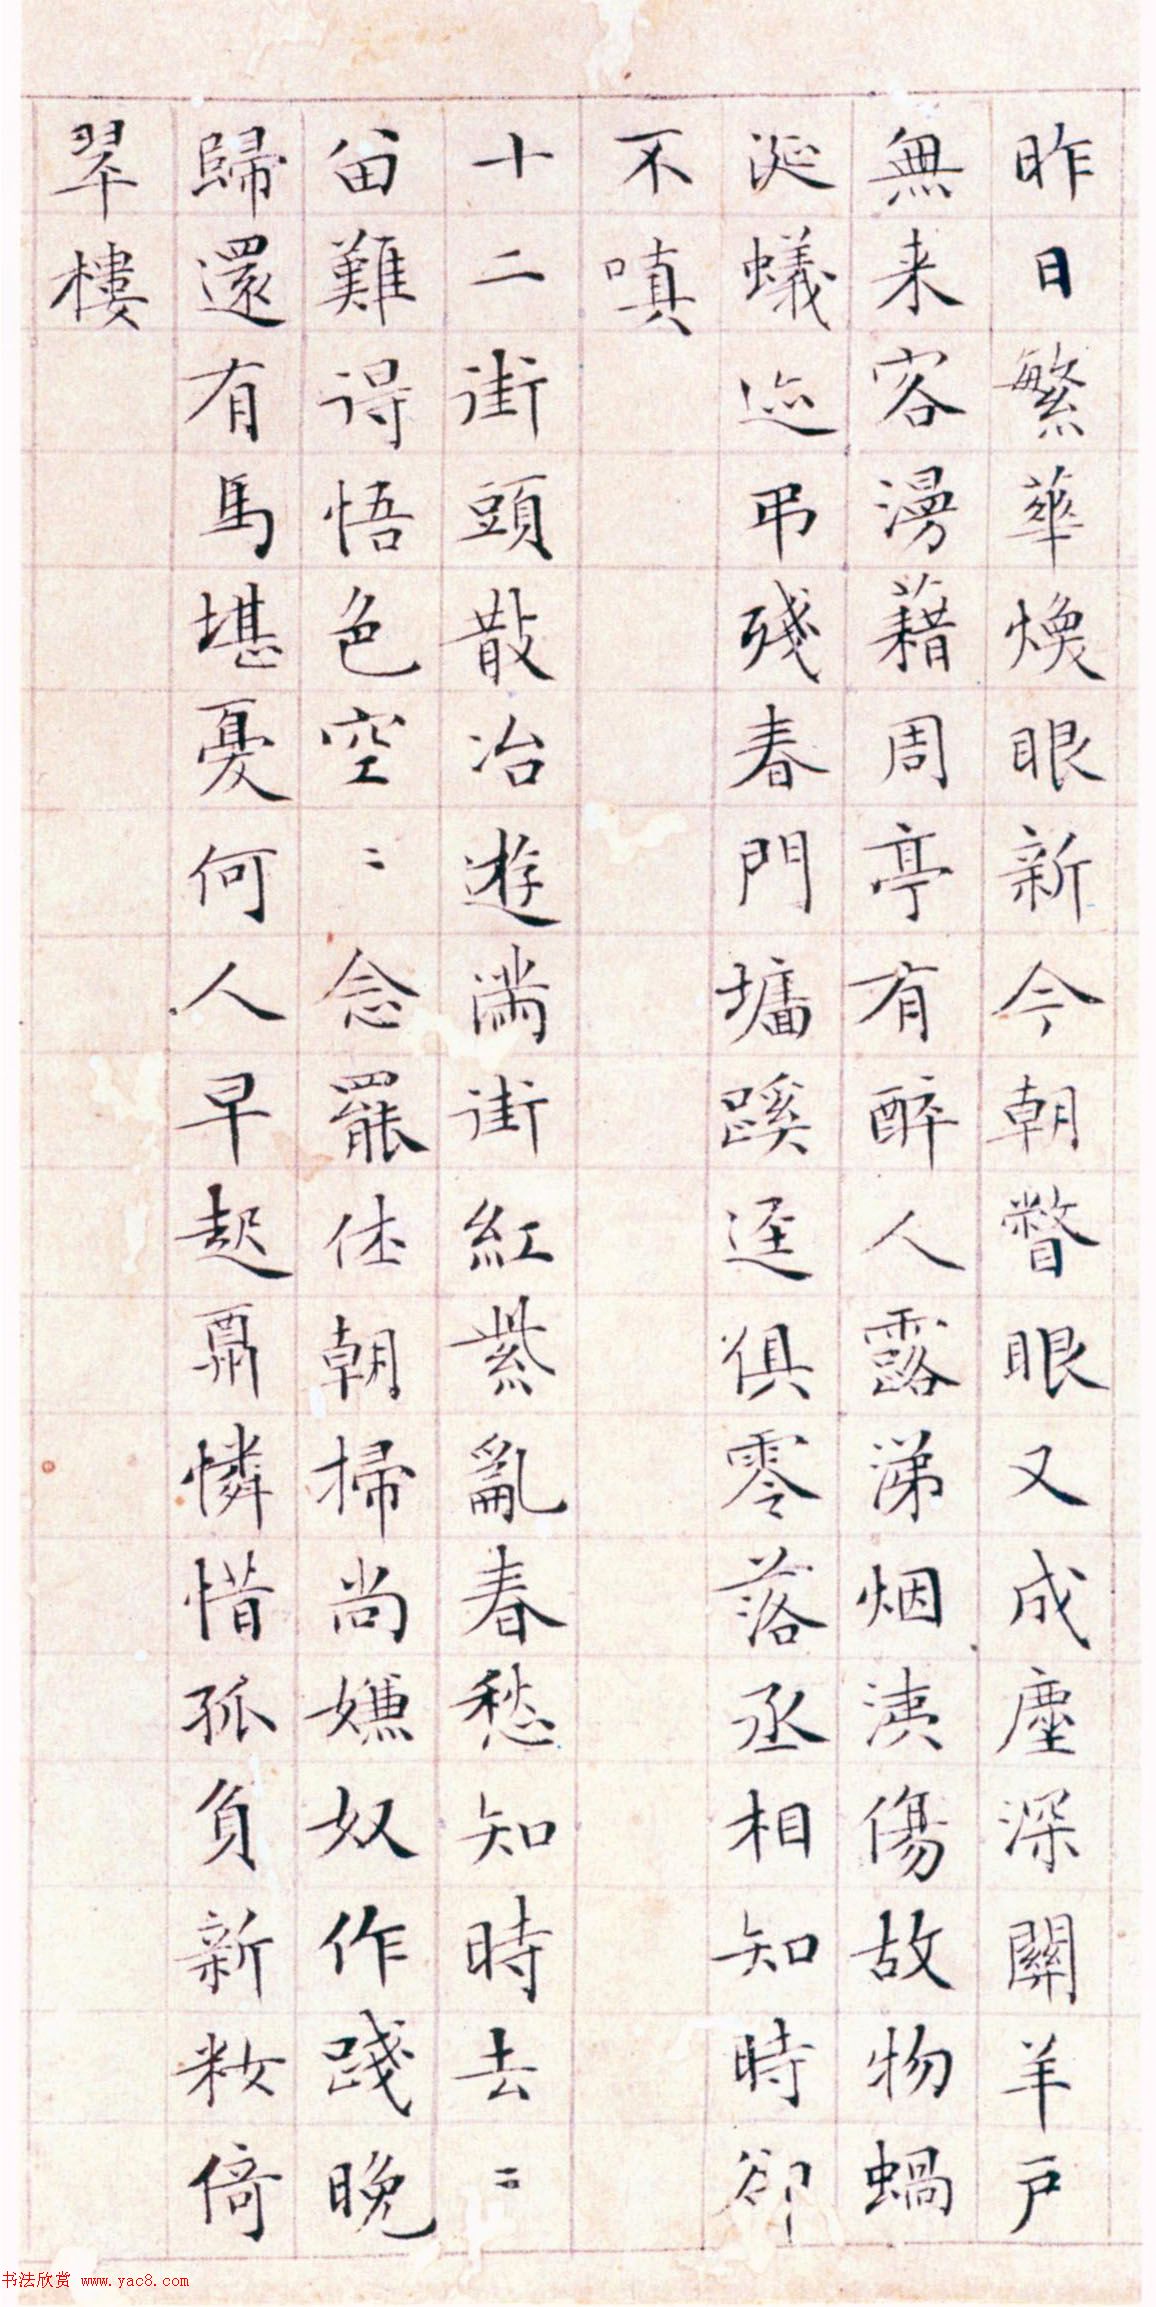 昨日繁華煥眼新今朝瞥眼又成塵深關羊戶
無来客漫藉周亭有醉人露涕烟洟傷故物蝸
涎蟻迹弔殘春門墻蹊逕俱零落丞相知時卻
不嗔
十二街頭散冶遊滿街紅紫亂春愁知時去〻
留難得悟色空〻念罷休朝掃尚嫌奴作踐晚
歸還有馬堪憂何人早起鬲憐惜孤負新妝倚
翠樓
书法欣赏 www.yac8.com